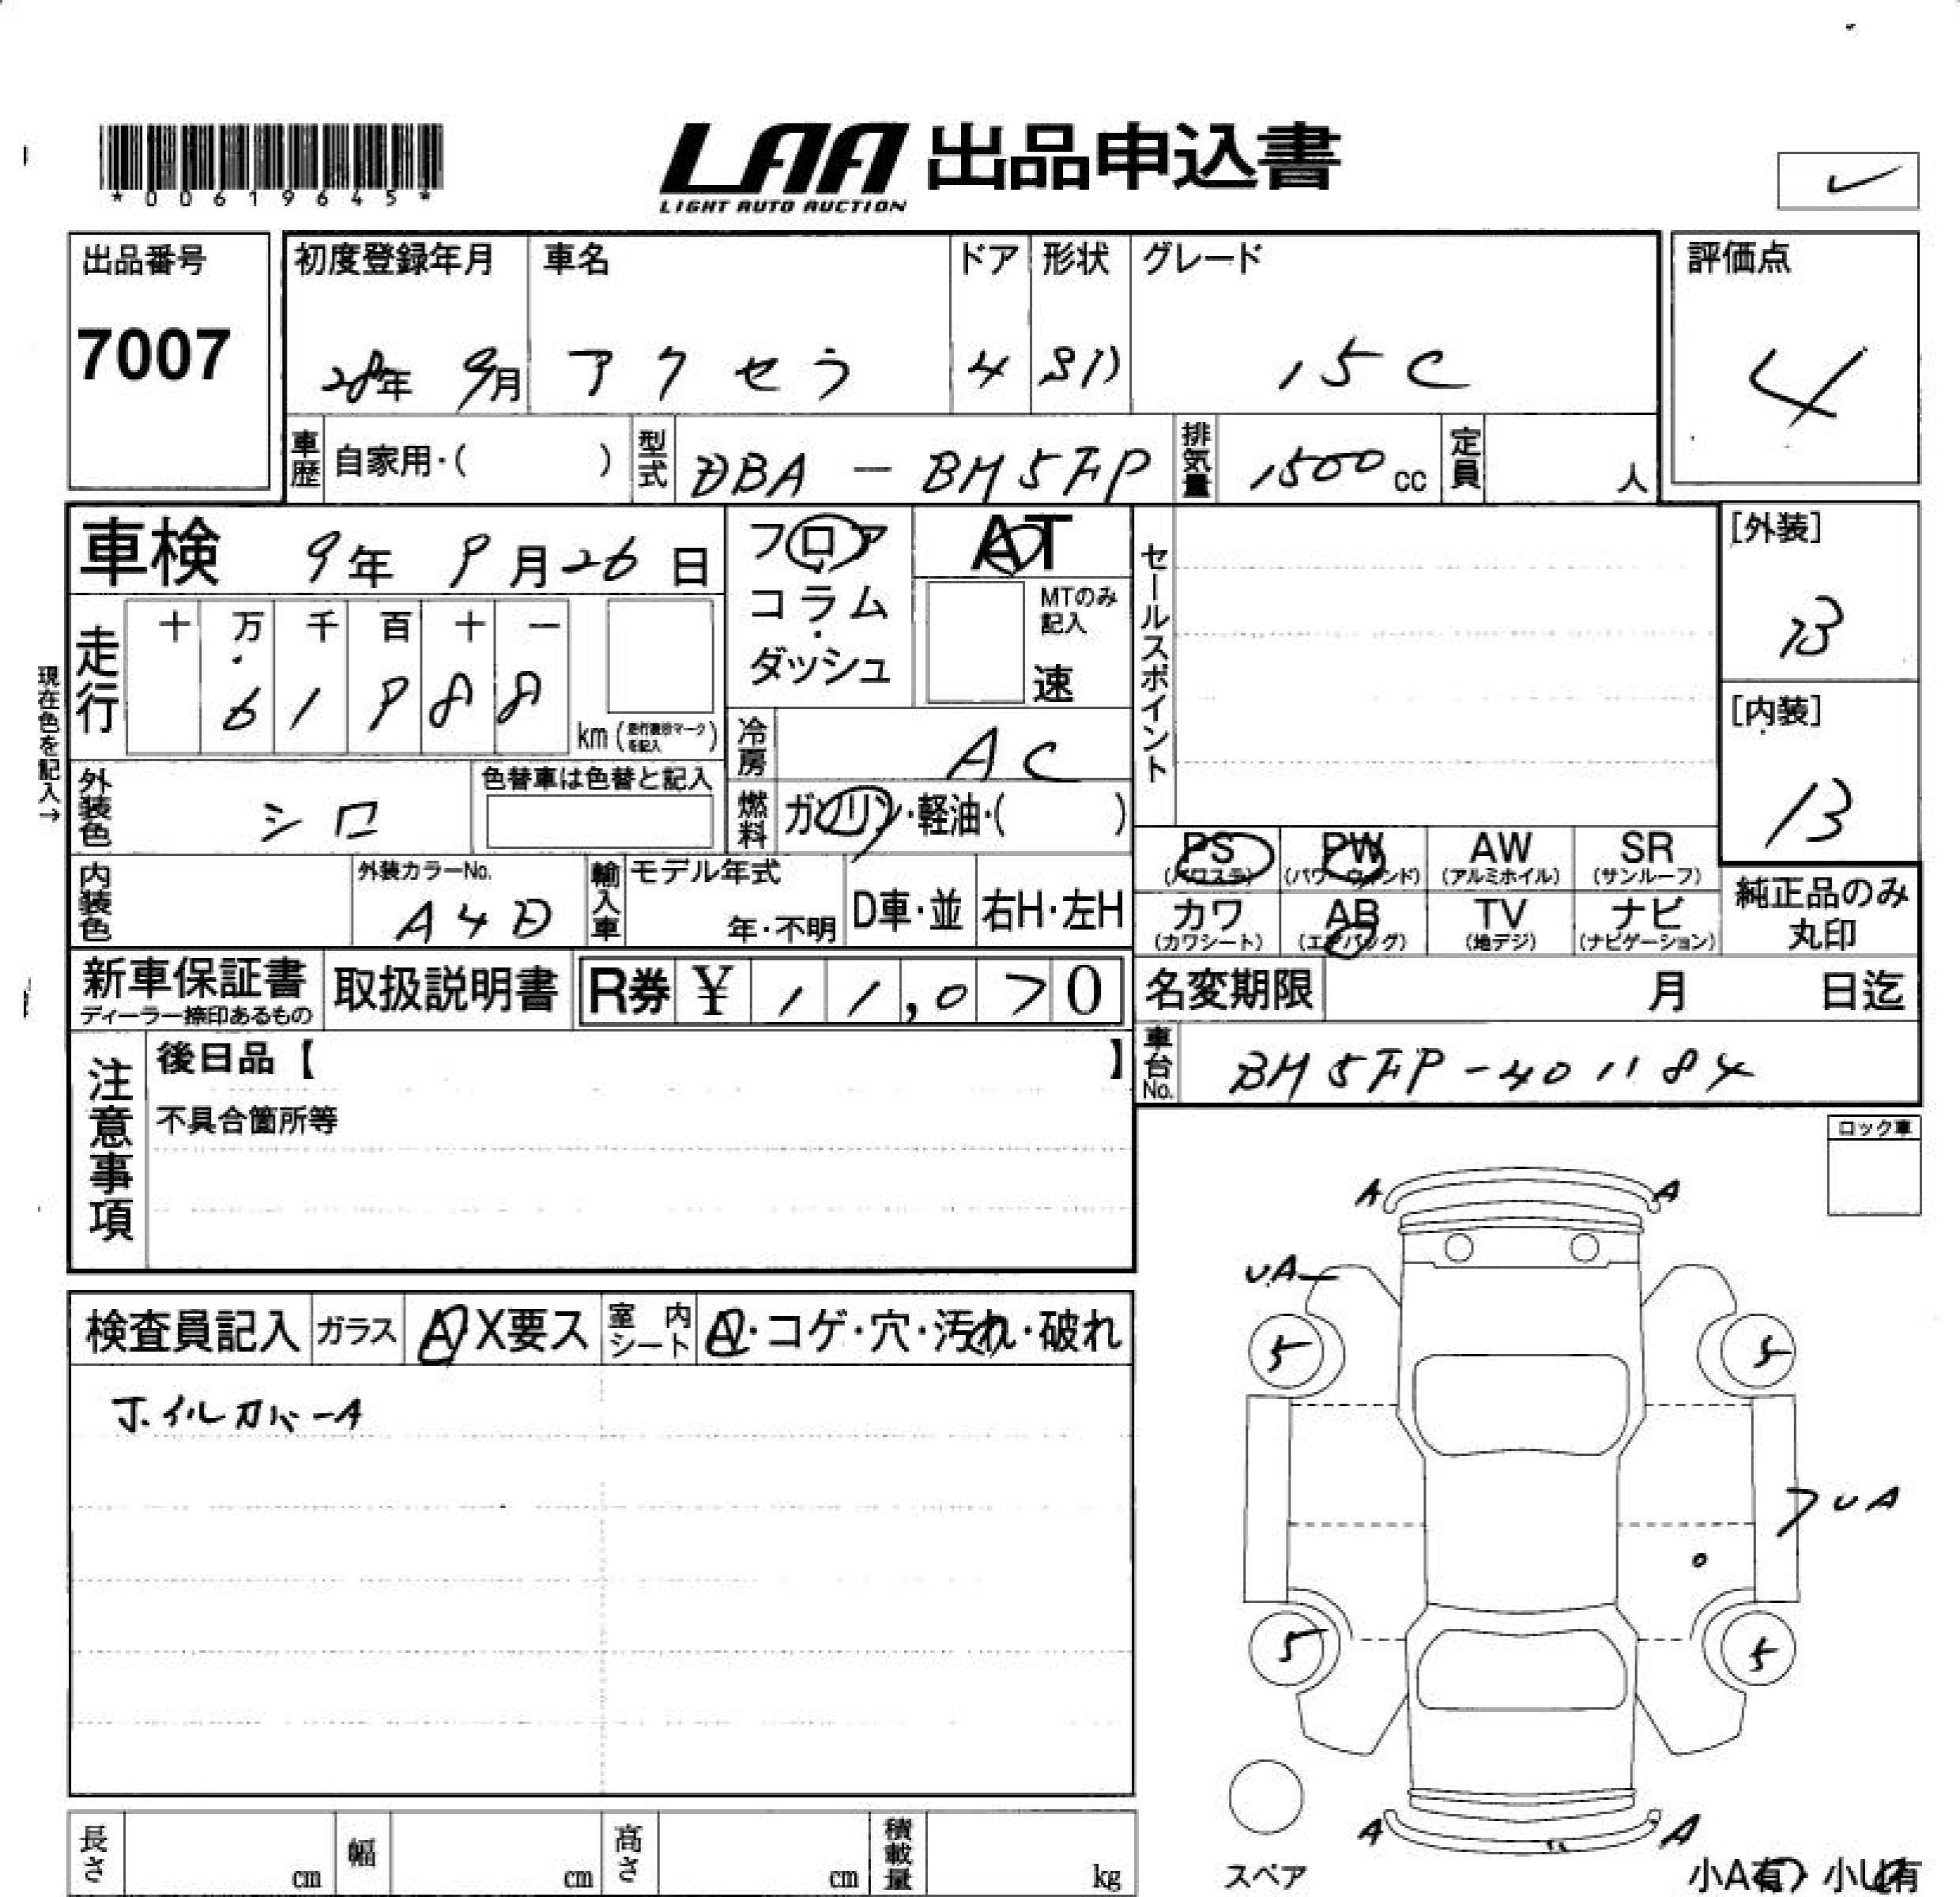 *00619645*
LAA 出品申込書
LIGHT AUTO AUCTION
出品番号 7007
初度登録年月 28年 9月
車名 アクセラ
ドア 4
形状 SD
グレード 15C
評価点 4
車歴 自家用・( )
型式 DBA-BM5FP
排気量 1500 cc
定員 人
車検 9年 9月26日
フロア・コラム・ダッシュ
AT
MTのみ記入
速
セールスポイント
[外装] B
[内装] B
現在色を記入→
走行 十 万 千 百 十 一
61988 km (走行表示マークを記入)
冷房 AC
外装色 シロ
色替車は色替と記入
燃料 ガソリン・軽油・( )
内装色
外装カラーNo. A4D
輸入車 モデル年式 年・不明
D車・並 右H・左H
PS (パワステ) PW (パワーウィンド) AW (アルミホイル) SR (サンルーフ)
カワ (カワシート) AB (エアバッグ) TV (地デジ) ナビ (ナビゲーション)
純正品のみ丸印
新車保証書 ディーラー捺印あるもの
取扱説明書
R券 ¥ 11,070
名変期限 月 日迄
車台No. BM5FP-401184
注意事項
後日品【 】
不具合箇所等
ロック車
検査員記入 ガラス A X要ス
室内シート A・コゲ・穴・汚れ・破れ
ホイルカバーA
A A
UA
5 5
UA
5 5
A A
スペア
小A有 小U有
長さ cm 幅 cm 高さ cm 積載量 kg